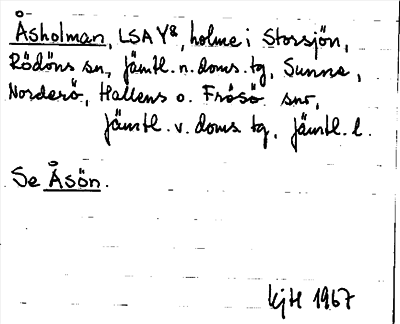 Åsholman, LSA Y8, holme i Storsjön,
Rödöns sn, Jämtl. n. doms. tg, Sunne,
Norderö, Hallens o. Frösö snr,
Jämtl. v. doms tg, Jämtl. l.
Se Åsön.
KjH 1967